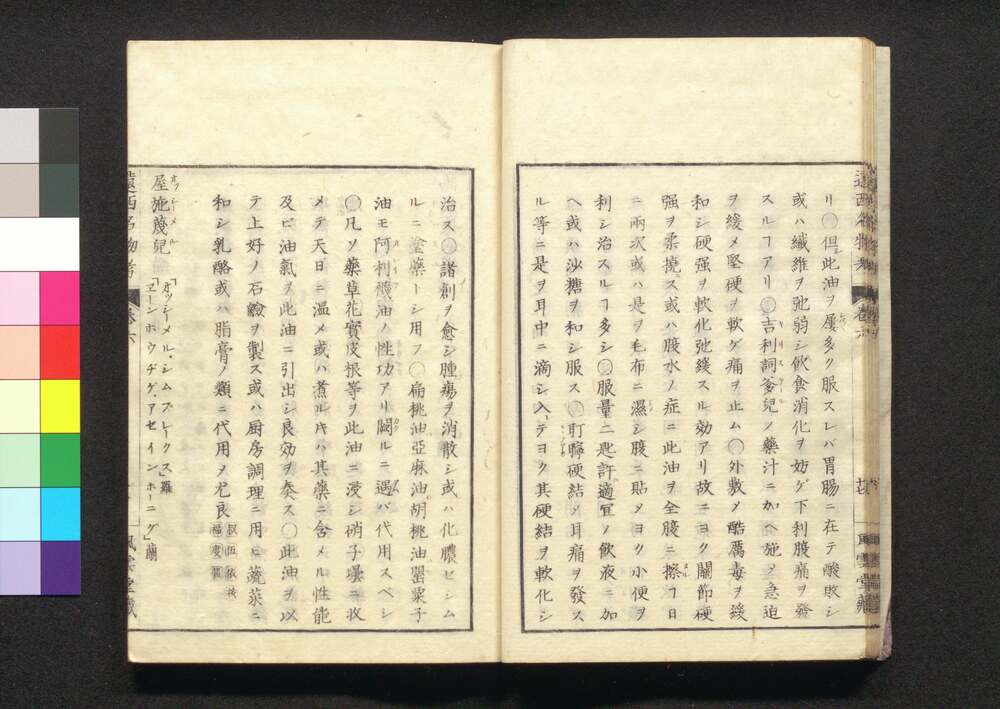 リ○但シ此油ヲ屢多ク服スレバ胃腸ニ在テ酸敗シ
或ハ纎維ヲ弛弱シ飲食消化ヲ妨ゲ下利腹痛ヲ發
スルヿアリ○吉利詞爹兒ノ藥汁ニ加ヘ施メ急迫
ヲ緩メ堅硬ヲ軟ゲ痛ヲ止ム○外敷メ酷厲毒ヲ緩
和シ硬强ヲ軟化弛緩スル効アリ故ニヨク關節硬
强ヲ柔撓ス或ハ腹水ノ症ニ此油ヲ全腹ニ擦ヿ日
ニ兩次或ハ是ヲ毛布ニ濕シ腹ニ貼メヨク小便ヲ
利シ治スルヿ多シ○服量二匙許適宜ノ飲液ニ加
ヘ或ハ沙糖ヲ和シ服ス○耵聹硬結メ耳痛ヲ發ス
ル等ニ是ヲ耳中ニ滴シ入テヨク其硬結ヲ軟化シ
治ス○諸創ヲ愈シ腫瘍ヲ消散シ或ハ化膿セシム
ルニ塗藥トシ用フ○扁桃油亞麻油胡桃油罌粟子
油モ阿利襪油ノ性功アリ闕ルニ遇バ代用スベシ
○凡ソ藥草花實皮根等ヲ此油ニ浸シ硝子壜ニ收
メテ天日ニ温メ或ハ煮ルキハ其藥ニ含メル性能
及ビ油氣ヲ此油ニ引出シ良効ヲ奏ス○此油ヲ以
テ上好ノ石鹼ヲ製ス或ハ厨房調理ニ用ヒ蔬菜ニ
和シ乳酪或ハ脂膏ノ類ニ代用メ尤良
屋施蔑兒 「オッシーメル・シムプレークス」羅
「エーンホウヂグ・アセインホーニグ」蘭
遠西名物考 卷六